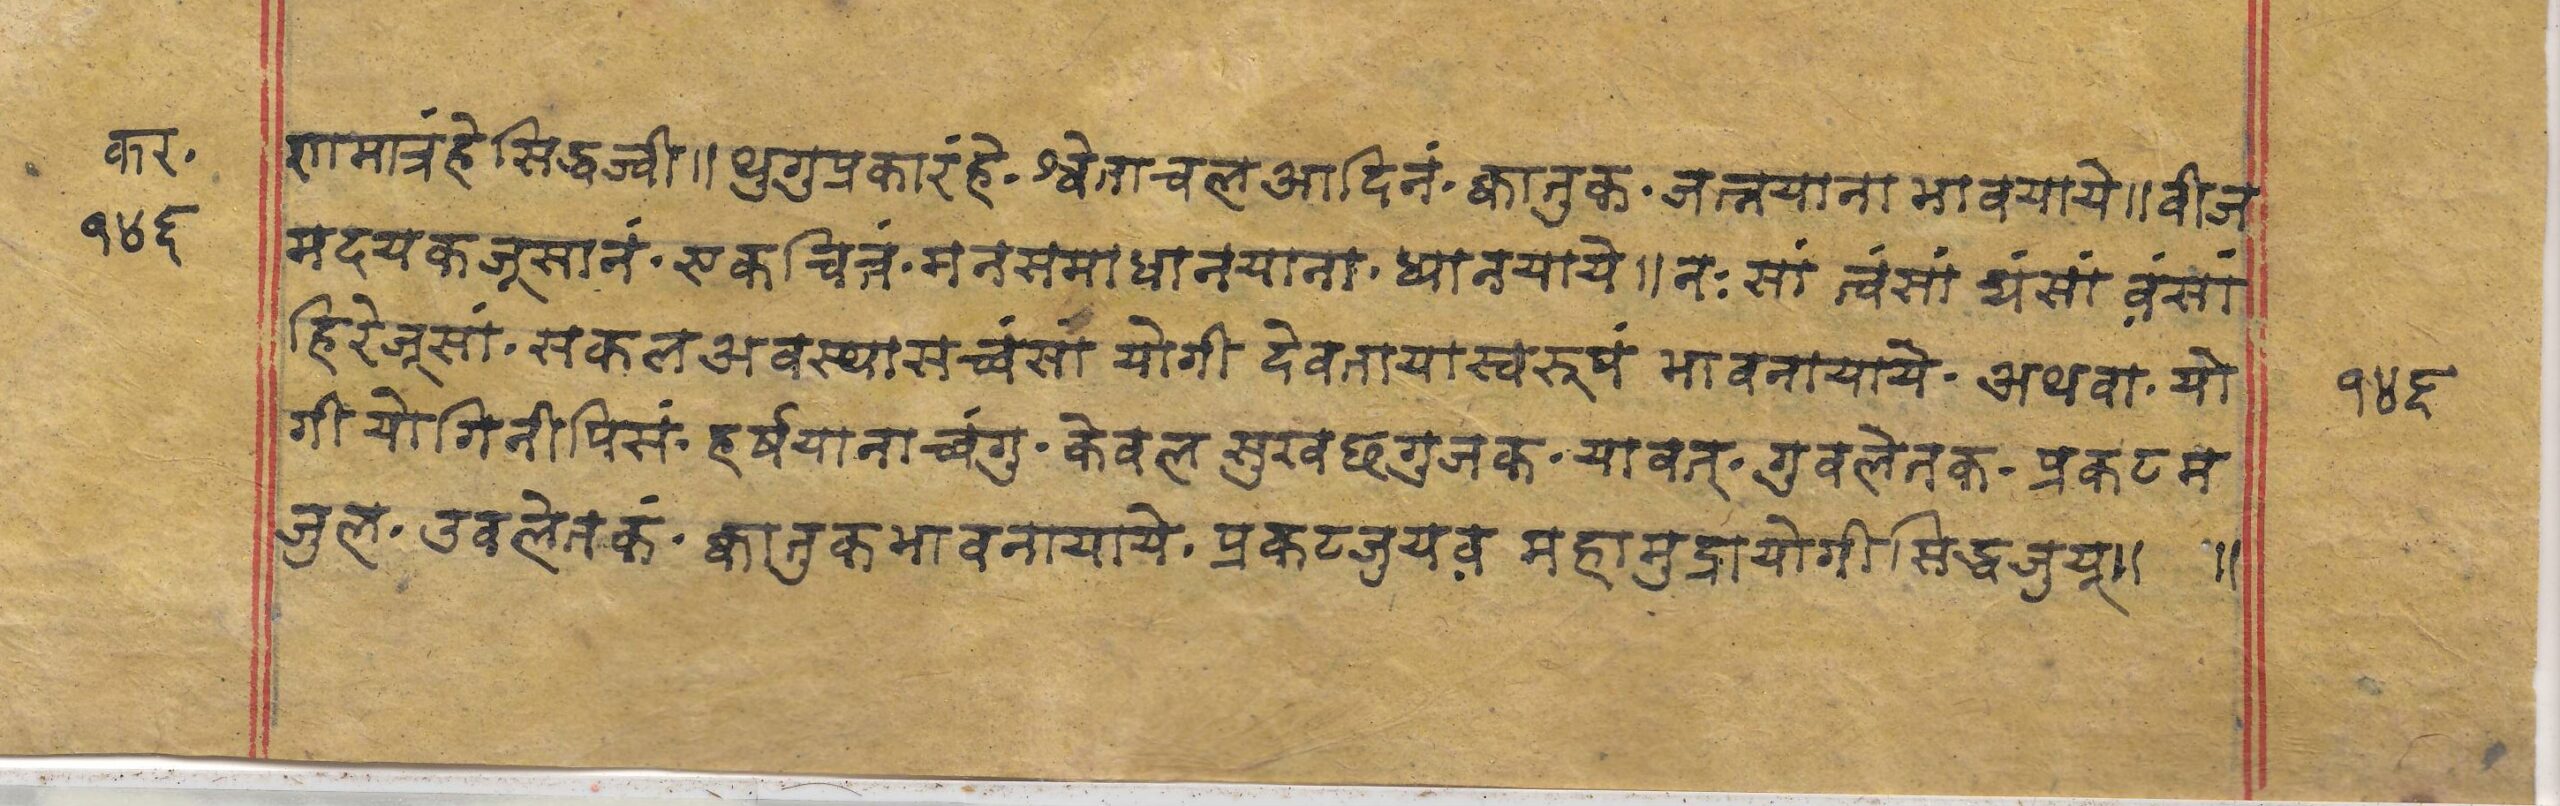 कर.
१४६
णामात्रंहे सिद्धज्वी॥ थुगुप्रकारंहे. श्वेताचलआदिनं. क्वातुक. जत्नयाना भावयाये॥ वीज
मदयकजूसानं. एकचित्तं. मनसमाधानयाना. ध्यानयाये॥ नः सां त्वंसां द्यंसां व़ंसां
हिरेजूसां. सकलअवस्थासच्वंसां योगी देवतायास्वरूपं भावनायाये. अथवा. यो
गीयोगिनीपिसं. हर्षयानाच्वंगु. केवल सुखछगुजक. यावत्. गुवलेतक. प्रकटम
जुल. उवलेतकं. क्वातुकभावनायाये. प्रकटजुयव़ महामुद्रायोगीसिद्धजुय्॥ ॥
१४६